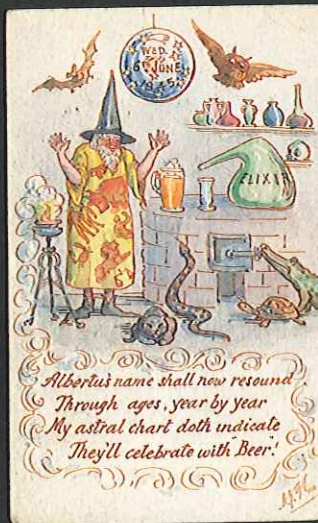 WED.
6 JUNE
1945
ELIXIR
Albertus name shall now resound
Through ages, year by year
My astral chart doth indicate
They'll celebrate with "Beer"!